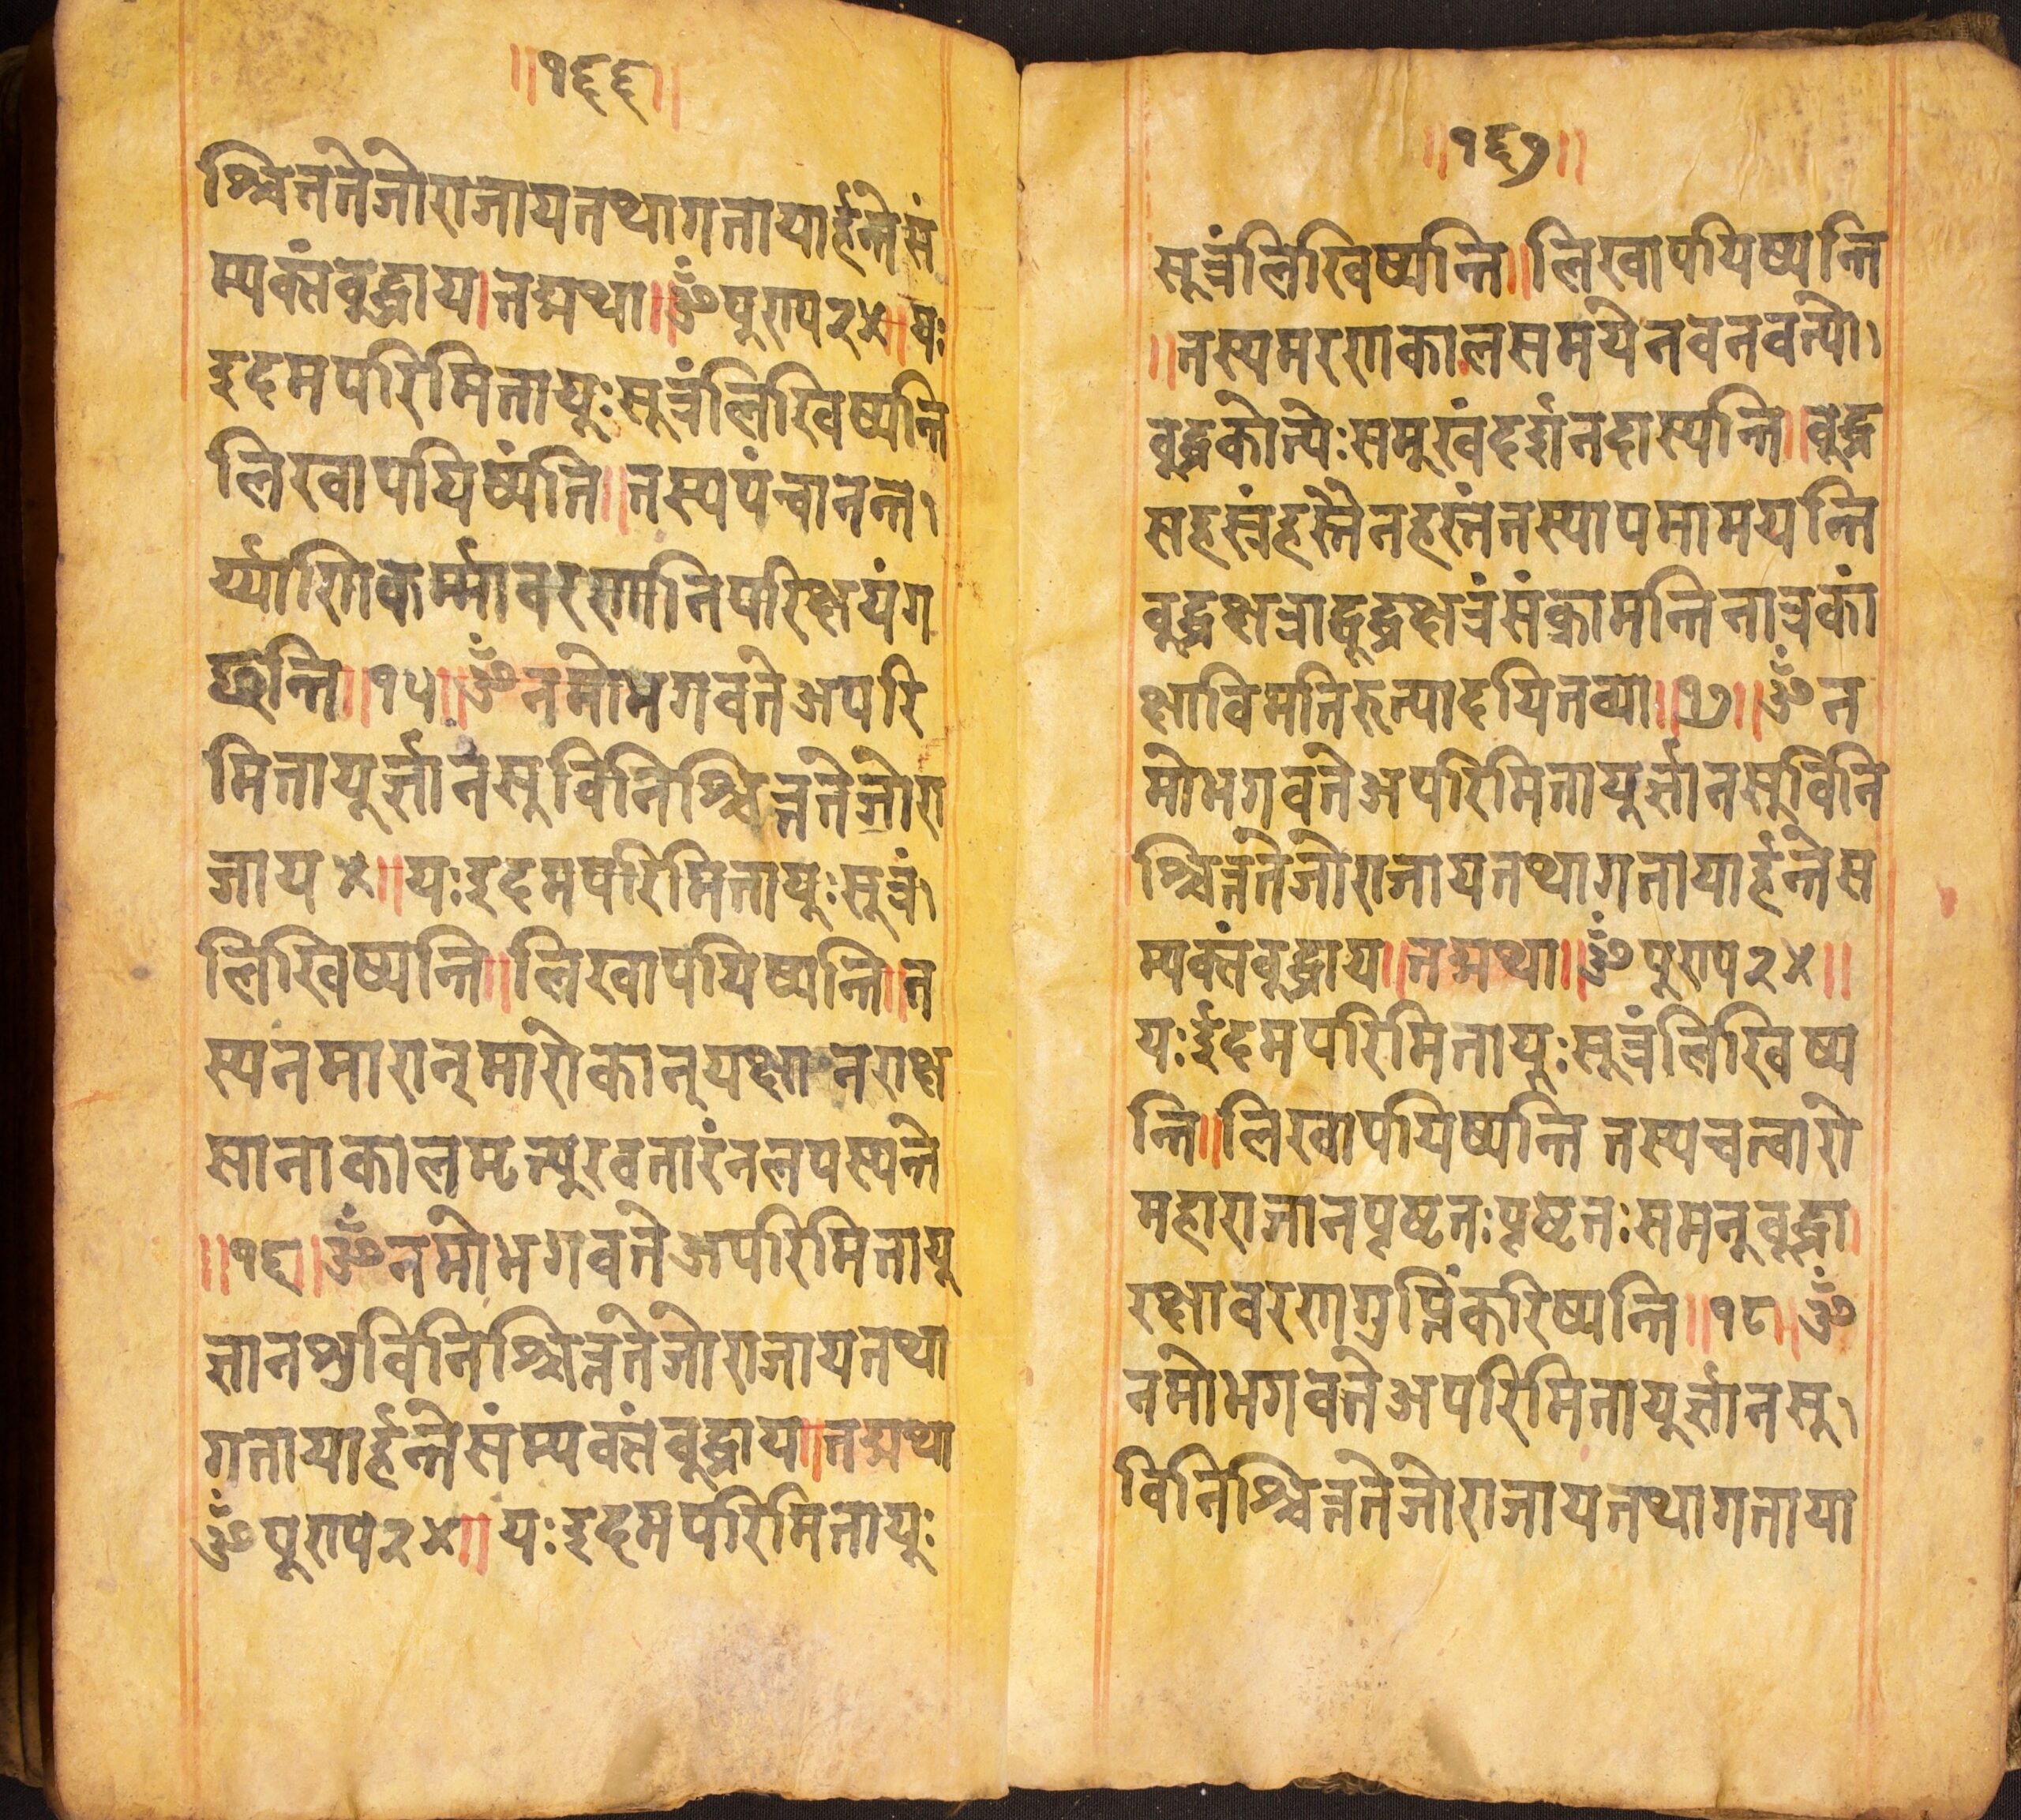 ॥१६६॥
श्चिततेजोराजायतथागतायार्हन्तेसं
म्यक्तंबुद्धाय।तद्मथा॥ॐपुराप२४॥यः
इदमपरिमितायुःसूत्रंलिखिष्यन्ति
लिखापयिष्यंति॥तस्यपंचानन्त।
र्य्याणिकर्म्मावरणानिपरिक्षयंग
छन्ति॥१५॥ॐनमोभगवतेअपरि
मितायूर्ज्ञानसुविनिश्चित्ततेजोरा
जाय४॥यःइदमपरिमितायुःसूत्रं।
लिखिष्यन्ति॥लिखापयिष्यन्ति॥त
स्यनमारान्मारोकान्यक्षानराक्ष
सानाकालमृत्युरवतारंनलपस्यन्ते
॥१६॥ॐनमोभगवतेअपरिमितायू
ज्ञानश्रुविनिश्चित्ततेजोराजायतथा
गतायार्हन्तेसंम्यक्तंबुद्धाय॥तद्मथा
ॐपुराप२४॥यःइदमपरिमितायुः
॥१६७॥
सूत्रंलिखिष्यन्ति॥लिखापयिष्यन्ति
॥तस्यमरणकालसमयेनवनवत्यो।
बुद्धकोत्येःसमुखंदर्शनदास्यन्ति॥बुद्ध
सहस्त्रंहस्तैनहस्तंतस्यापमामयन्ति
बुद्धक्षत्राद्बुद्धक्षत्रंसंक्रामन्तिनात्रकां
क्षाविमतिरुत्पादयितव्या॥१७॥ॐन
मोभगवतेअपरिमितायुर्ज्ञानसुविनि
श्चित्ततेजोराजायतथागतायार्हन्तेस
म्यक्तंबूद्धाय॥तद्मथा॥ॐपुराप२४॥
यःईदमपरिमितायुःसूत्रंलिखिष्य
न्ति॥लिखापयिष्यन्ति तस्यचत्वारो
महाराजानपृष्टतःपृष्टतःसमनुबुद्धा।
रक्षावरणगुप्तिंकरिष्यन्ति॥१८॥ॐ
नमोभगवतेअपरिमितायुर्ज्ञानसु।
विनिश्चित्ततेजोराजायतथागताया